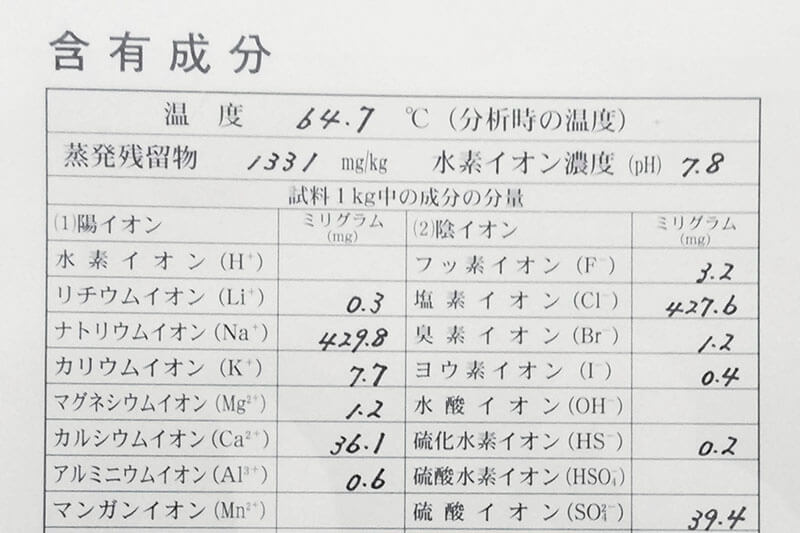 含有成分
温度 64.7 ℃(分析時の温度)
蒸発残留物 1331 mg/kg 水素イオン濃度(pH) 7.8
試料1kg中の成分の分量
(1)陽イオン ミリグラム(mg) (2)陰イオン ミリグラム(mg)
水素イオン(H⁺) フッ素イオン(F⁻) 3.2
リチウムイオン(Li⁺) 0.3 塩素イオン(Cl⁻) 427.6
ナトリウムイオン(Na⁺) 429.8 臭素イオン(Br⁻) 1.2
カリウムイオン(K⁺) 7.7 ヨウ素イオン(I⁻) 0.4
マグネシウムイオン(Mg²⁺) 1.2 水酸イオン(OH⁻)
カルシウムイオン(Ca²⁺) 36.1 硫化水素イオン(HS⁻) 0.2
アルミニウムイオン(Al³⁺) 0.6 硫酸水素イオン(HSO₄⁻)
マンガンイオン(Mn²⁺) 硫酸イオン(SO₄²⁻) 39.4